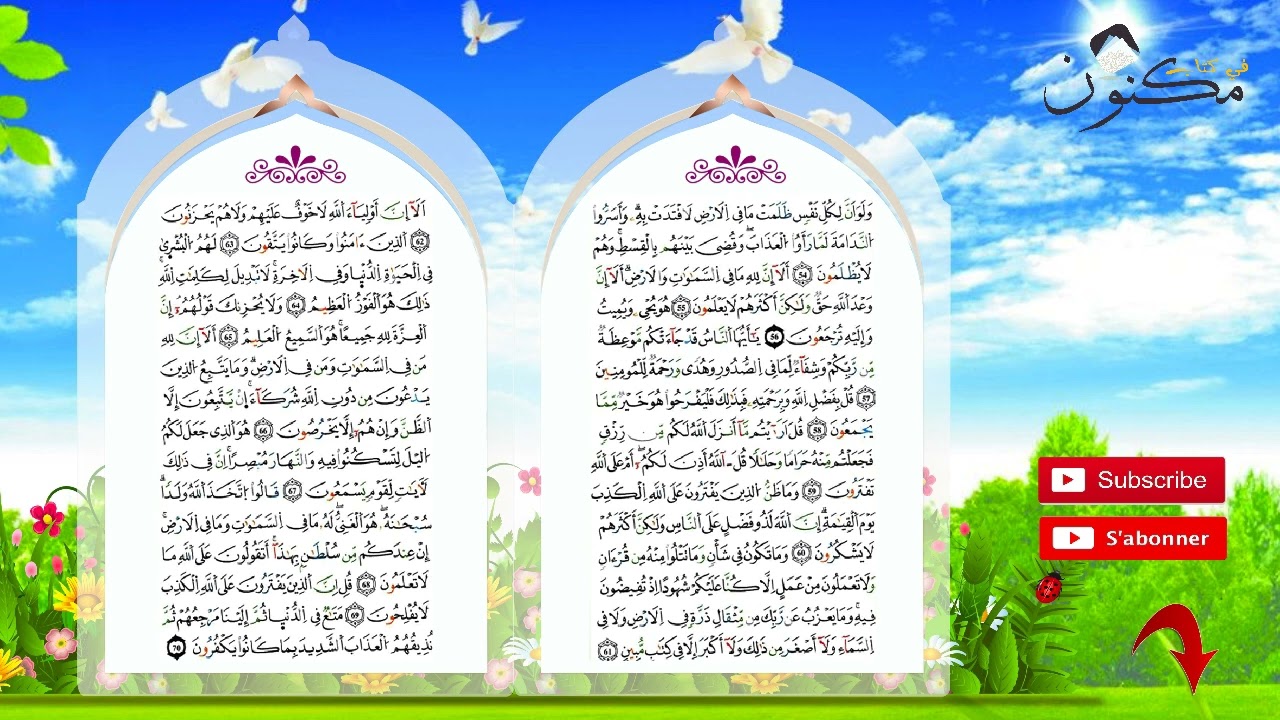 وَلَوَ اَنَّ لِكُلِّ نَفْسٍ ظَلَمَتْ مَا فِي اِلَارْضِ لَافْتَدَتْ بِهِۦ وَأَسَرُّواْ
اُلنَّدَامَةَ لَمَّا رَأَوُاْ اُلْعَذَابَ وَقُضِيَ بَيْنَهُم بِالْقِسْطِ وَهُمْ
لَا يُظْلَمُونَ 54 أَلَآ إِنَّ لِلهِ مَا فِي اِلسَّمَٰوَٰتِ وَالَارْضِ أَلَآ إِنَّ
وَعْدَ اَللَّهِ حَقٌّ وَلَٰكِنَّ أَكْثَرَهُمْ لَا يَعْلَمُونَ 55 هُوَ يُحْيِي وَيُمِيتُ
وَإِلَيْهِ تُرْجَعُونَ 56 يَٰٓأَيُّهَا اَلنَّاسُ قَدْ جَآءَتْكُم مَّوْعِظَةٌ
مِّن رَّبِّكُمْ وَشِفَآءٌ لِّمَا فِي اِلصُّدُورِ وَهُدًى وَرَحْمَةٌ لِّلْمُومِنِينَ
57 قُلْ بِفَضْلِ اِللَّهِ وَبِرَحْمَتِهِۦ فَبِذَٰلِكَ فَلْيَفْرَحُواْ هُوَ خَيْرٌ مِّمَّا
يَجْمَعُونَ 58 قُلَ اَرَٰيْتُم مَّآ أَنزَلَ اَللَّهُ لَكُم مِّن رِّزْقٍ
فَجَعَلْتُم مِّنْهُ حَرَامًا وَحَلَٰلًا قُلَ ـٰٓاللَّهُ أَذِنَ لَكُمُۥٓ أَمْ عَلَى اَللَّهِ
تَفْتَرُونَ 59 وَمَا ظَنُّ اُلذِينَ يَفْتَرُونَ عَلَى اَللَّهِ اِلْكَذِبَ
يَوْمَ اَلْقِيَٰمَةِ إِنَّ اَللَّهَ لَذُو فَضْلٍ عَلَى اَلنَّاسِ وَلَٰكِنَّ أَكْثَرَهُمْ
لَا يَشْكُرُونَ 60 وَمَا تَكُونُ فِي شَأْنٍ وَمَا تَتْلُواْ مِنْهُ مِن قُرْءَانٍ
وَلَا تَعْمَلُونَ مِنْ عَمَلٍ اِلَّا كُنَّا عَلَيْكُمْ شُهُودًا اِذْ تُفِيضُونَ
فِيهِ وَمَا يَعْزُبُ عَن رَّبِّكَ مِن مِّثْقَالِ ذَرَّةٍ فِي اِلَارْضِ وَلَا فِي
اِلسَّمَآءِ وَلَآ أَصْغَرَ مِن ذَٰلِكَ وَلَآ أَكْبَرَ إِلَّا فِي كِتَٰبٍ مُّبِينٍ 61
اَلَآ إِنَّ أَوْلِيَآءَ اَللَّهِ لَا خَوْفٌ عَلَيْهِمْ وَلَا هُمْ يَحْزَنُونَ
62 اَلذِينَ ءَامَنُواْ وَكَانُواْ يَتَّقُونَ 63 لَهُمُ اُلْبُشْر۪ىٰ
فِي اِلْحَيَوٰةِ اِلدُّنْي۪ا وَفِي اِلَاخِرَةِ لَا تَبْدِيلَ لِكَلِمَٰتِ اِللَّهِ
ذَٰلِكَ هُوَ اَلْفَوْزُ اُلْعَظِيمُ 64 وَلَا يُحْزِنكَ قَوْلُهُمُۥٓ إِنَّ
اَلْعِزَّةَ لِلهِ جَمِيعًا هُوَ اَلسَّمِيعُ اُلْعَلِيمُ 65 أَلَآ إِنَّ لِلهِ
مَن فِي اِلسَّمَٰوَٰتِ وَمَن فِي اِلَارْضِ وَمَا يَتَّبِعُ اُلذِينَ
يَدْعُونَ مِن دُونِ اِللَّهِ شُرَكَآءَ اِنْ يَّتَّبِعُونَ إِلَّا
اَلظَّنَّ وَإِنْ هُمُۥٓ إِلَّا يَخْرُصُونَ 66 هُوَ اَلذِي جَعَلَ لَكُمُ
اُلَيْلَ لِتَسْكُنُواْ فِيهِ وَالنَّهَارَ مُبْصِرًا اِنَّ فِي ذَٰلِكَ
لَأٓيَٰتٍ لِّقَوْمٍ يَسْمَعُونَ 67 قَالُواْ اُتَّخَذَ اَللَّهُ وَلَدًا
سُبْحَٰنَهُۥ هُوَ اَلْغَنِيُّ لَهُۥ مَا فِي اِلسَّمَٰوَٰتِ وَمَا فِي اِلَارْضِ
إِنْ عِندَكُم مِّن سُلْطَٰنٍ بِهَٰذَآ أَتَقُولُونَ عَلَى اَللَّهِ مَا
لَا تَعْلَمُونَ 68 قُلِ اِنَّ اَلذِينَ يَفْتَرُونَ عَلَى اَللَّهِ اِلْكَذِبَ
لَا يُفْلِحُونَ 69 مَتَٰعٌ فِي اِلدُّنْي۪ا ثُمَّ إِلَيْنَا مَرْجِعُهُمْ ثُمَّ
نُذِيقُهُمُ اُلْعَذَابَ اَلشَّدِيدَ بِمَا كَانُواْ يَكْفُرُونَ 70
في كتاب
مكنون
Subscribe
S'abonner